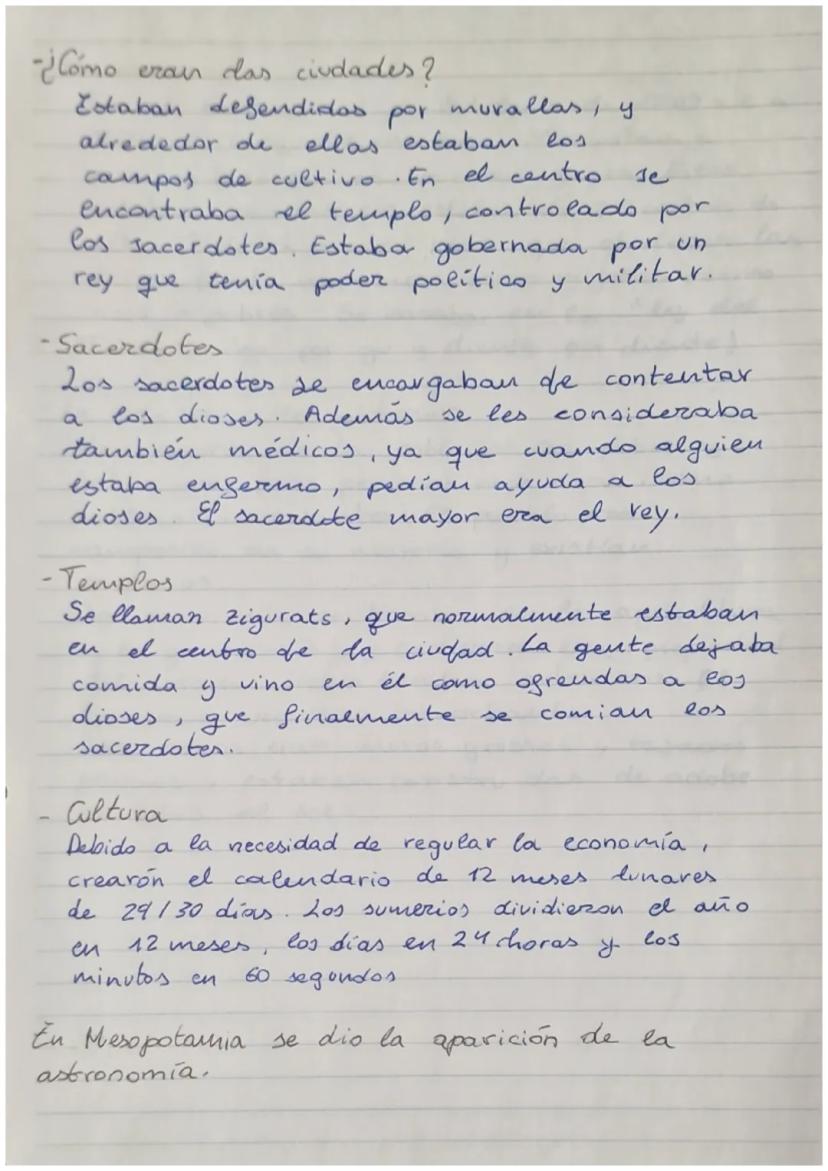 -¿Cómo eran las ciudades?
Estaban defendidas por murallas, y
alrededor de ellas estaban los
campos de cultivo. En el centro se
encontraba el templo, controlado por
los sacerdotes. Estaba gobernada por un
rey que tenía poder político y militar.
- Sacerdotes
Los sacerdotes se encargaban de contentar
a los dioses. Además se les consideraba
también médicos, ya que cuando alguien
estaba enfermo, pedían ayuda a los
dioses. El sacerdote mayor era el rey.
- Templos
Se llaman zigurats, que normalmente estaban
en el centro de la ciudad. La gente dejaba
comida y vino en él como ofrendas a los
dioses, que finalmente se comían los
sacerdotes.
- Cultura
Debido a la necesidad de regular la economía,
crearón el calendario de 12 meses lunares
de 29/30 días. Los sumerios dividieron el año
en 12 meses, los días en 24 horas y los
minutos en 60 segundos
En Mesopotamia se dio la aparición de la
astronomía.